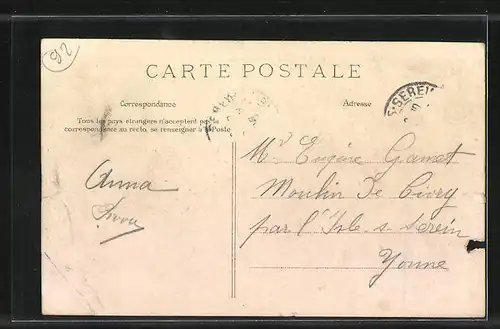 92
CARTE POSTALE
Correspondance
Adresse
Tous les pays étrangers n'acceptent pas la
correspondance au recto, se renseigner à la Poste
S-SEREIN
Anna
Mr Eugène Gamet
Moulin de Civry
par l'Isle s. Serein
Yonne